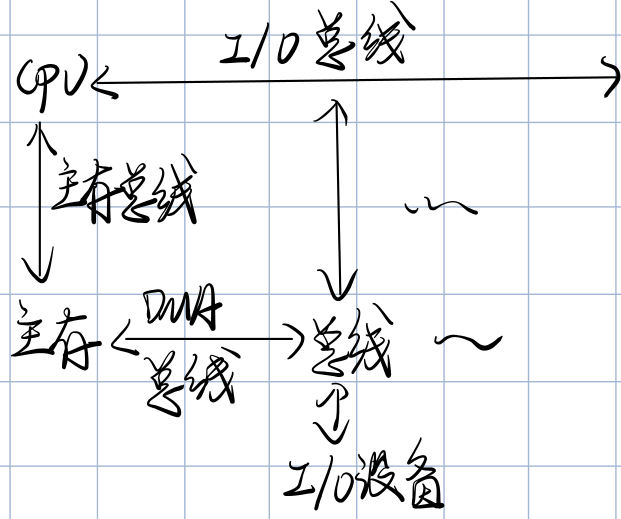 I/O总线
CPU
主存总线
DMA
主存
总线
总线
I/O设备